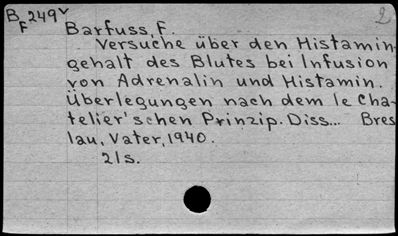 B 249v
F
2
Barfuss, F.
Versuche über den Histamin-
gehalt des Blutes bei Infusion
von Adrenalin und Histamin.
Überlegungen nach dem le Cha-
telier'schen Prinzip. Diss... Bres
lau, Vater, 1940.
21s.